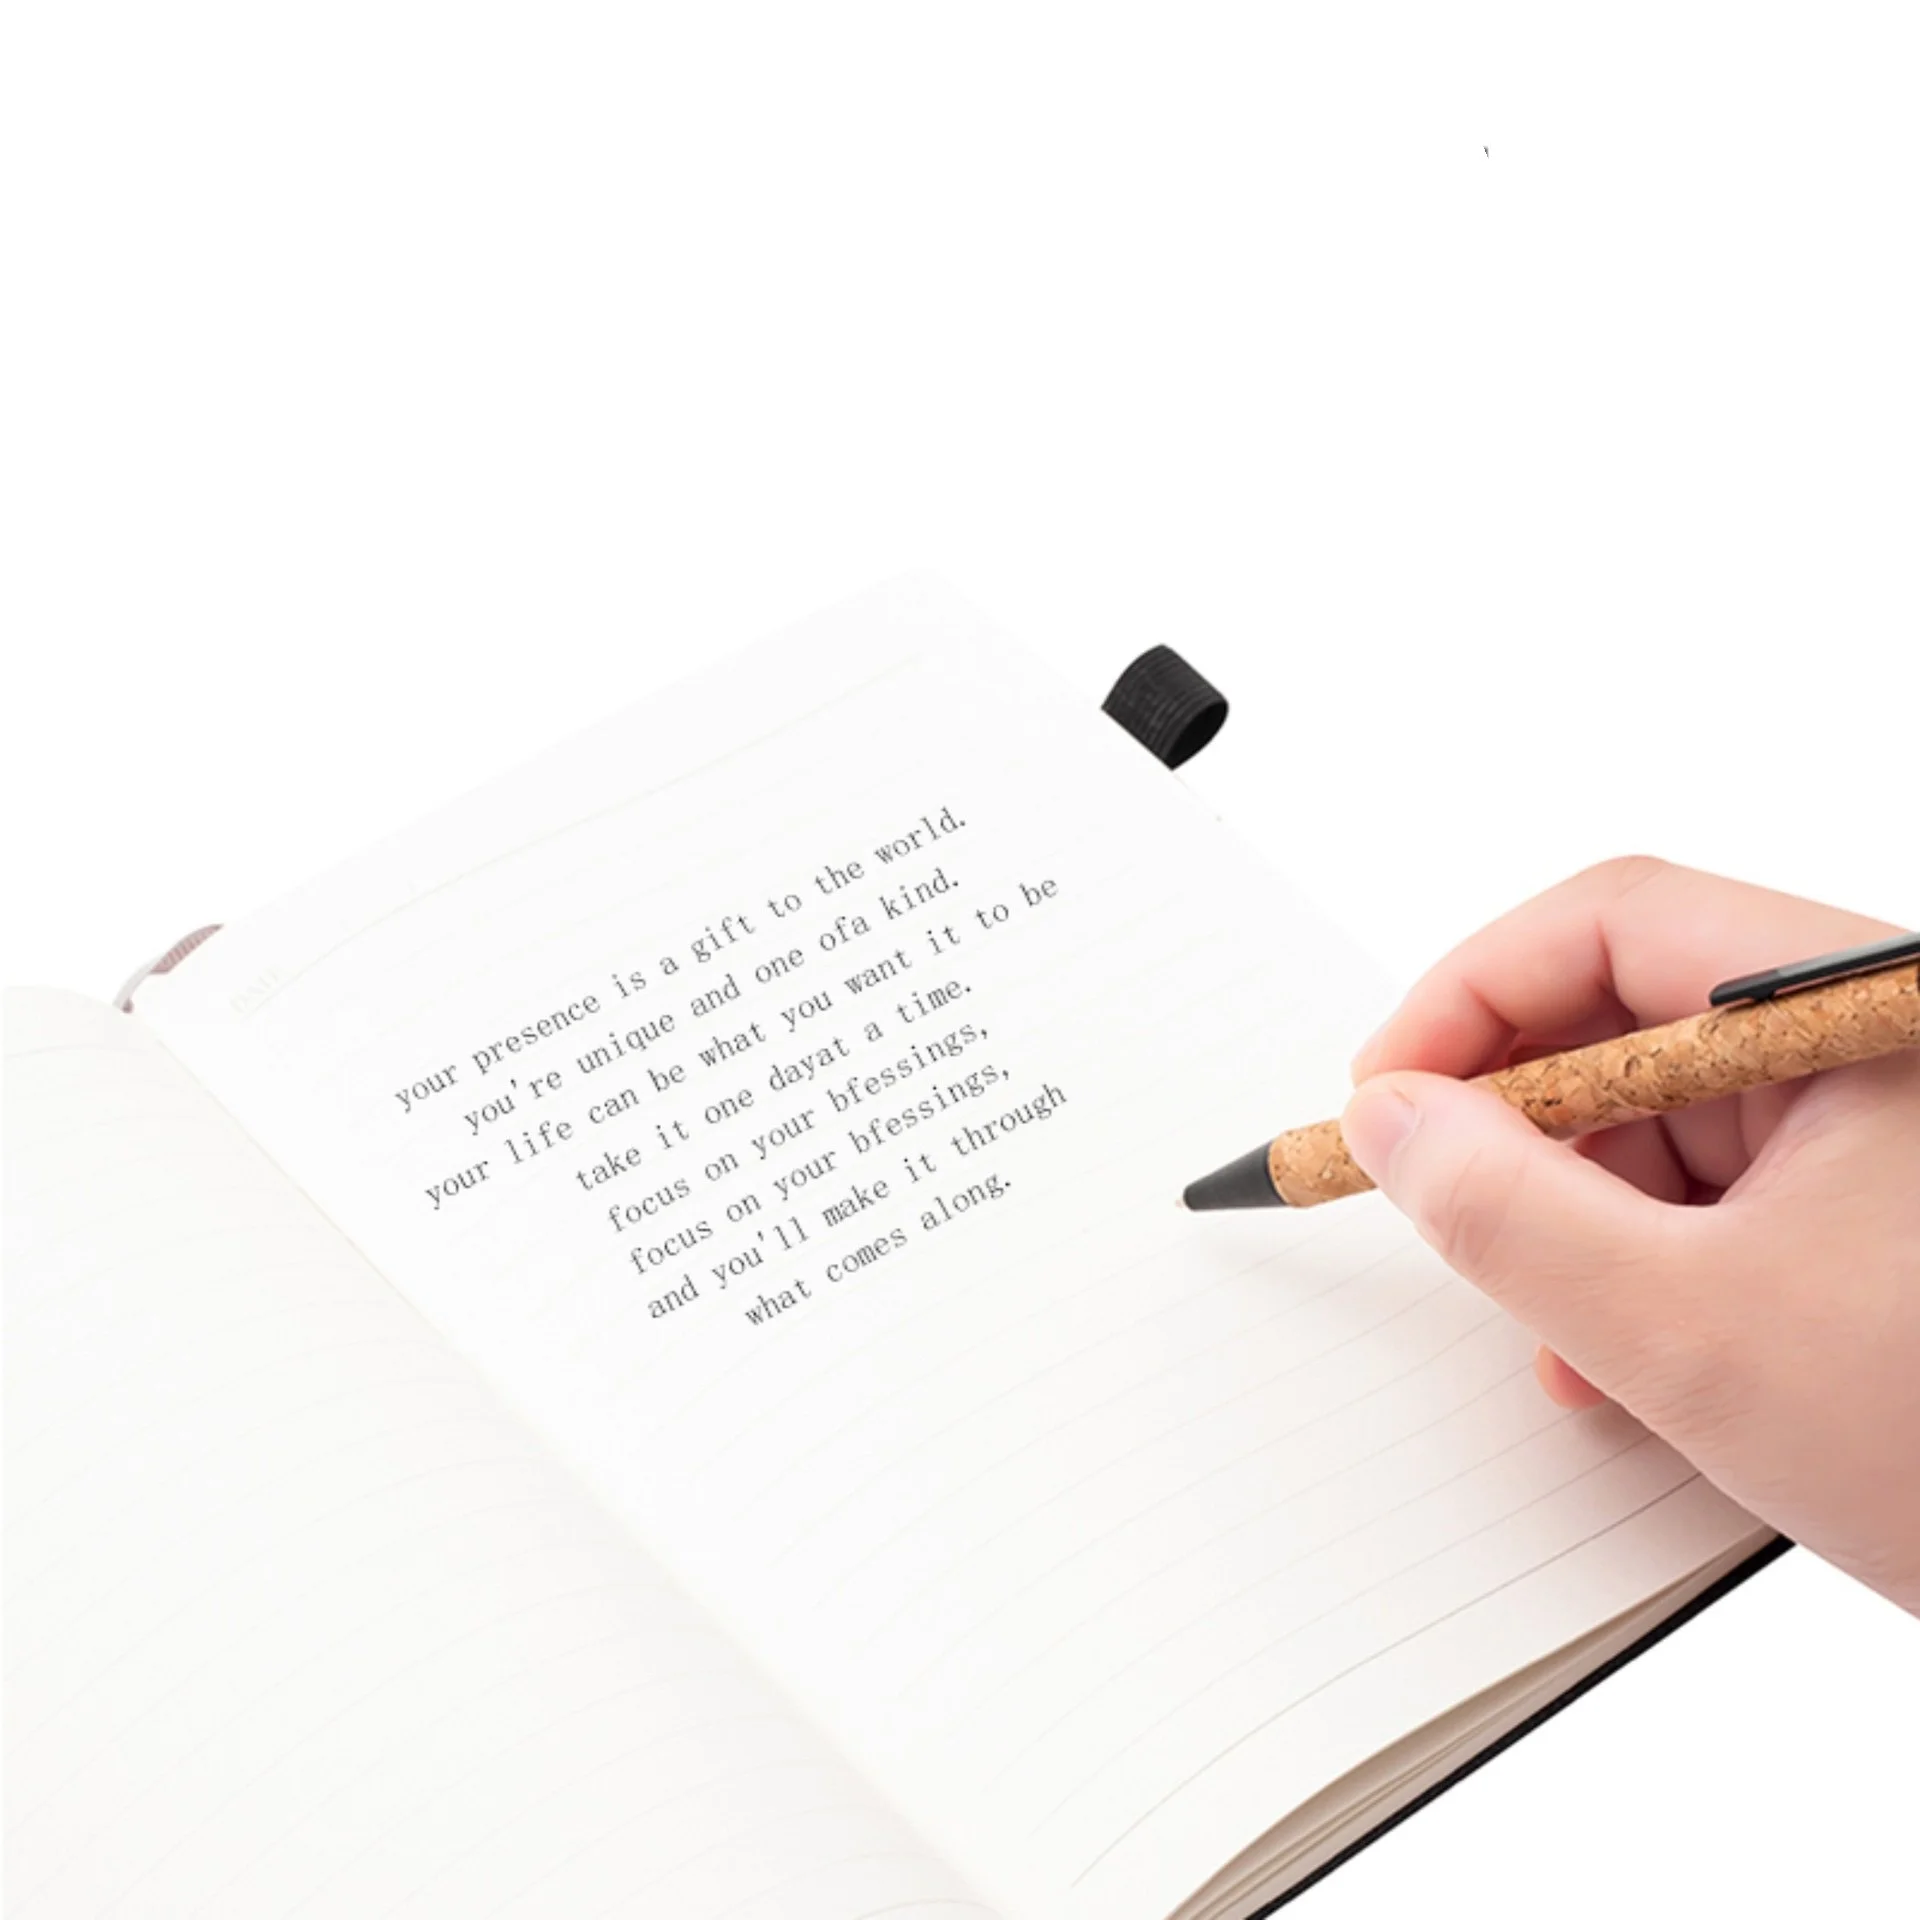 your presence is a gift to the world.
you're unique and one ofa kind.
your life can be what you want it to be
take it one dayat a time.
focus on your bfessings,
focus on your bfessings,
and you'll make it through
what comes along.
DATE